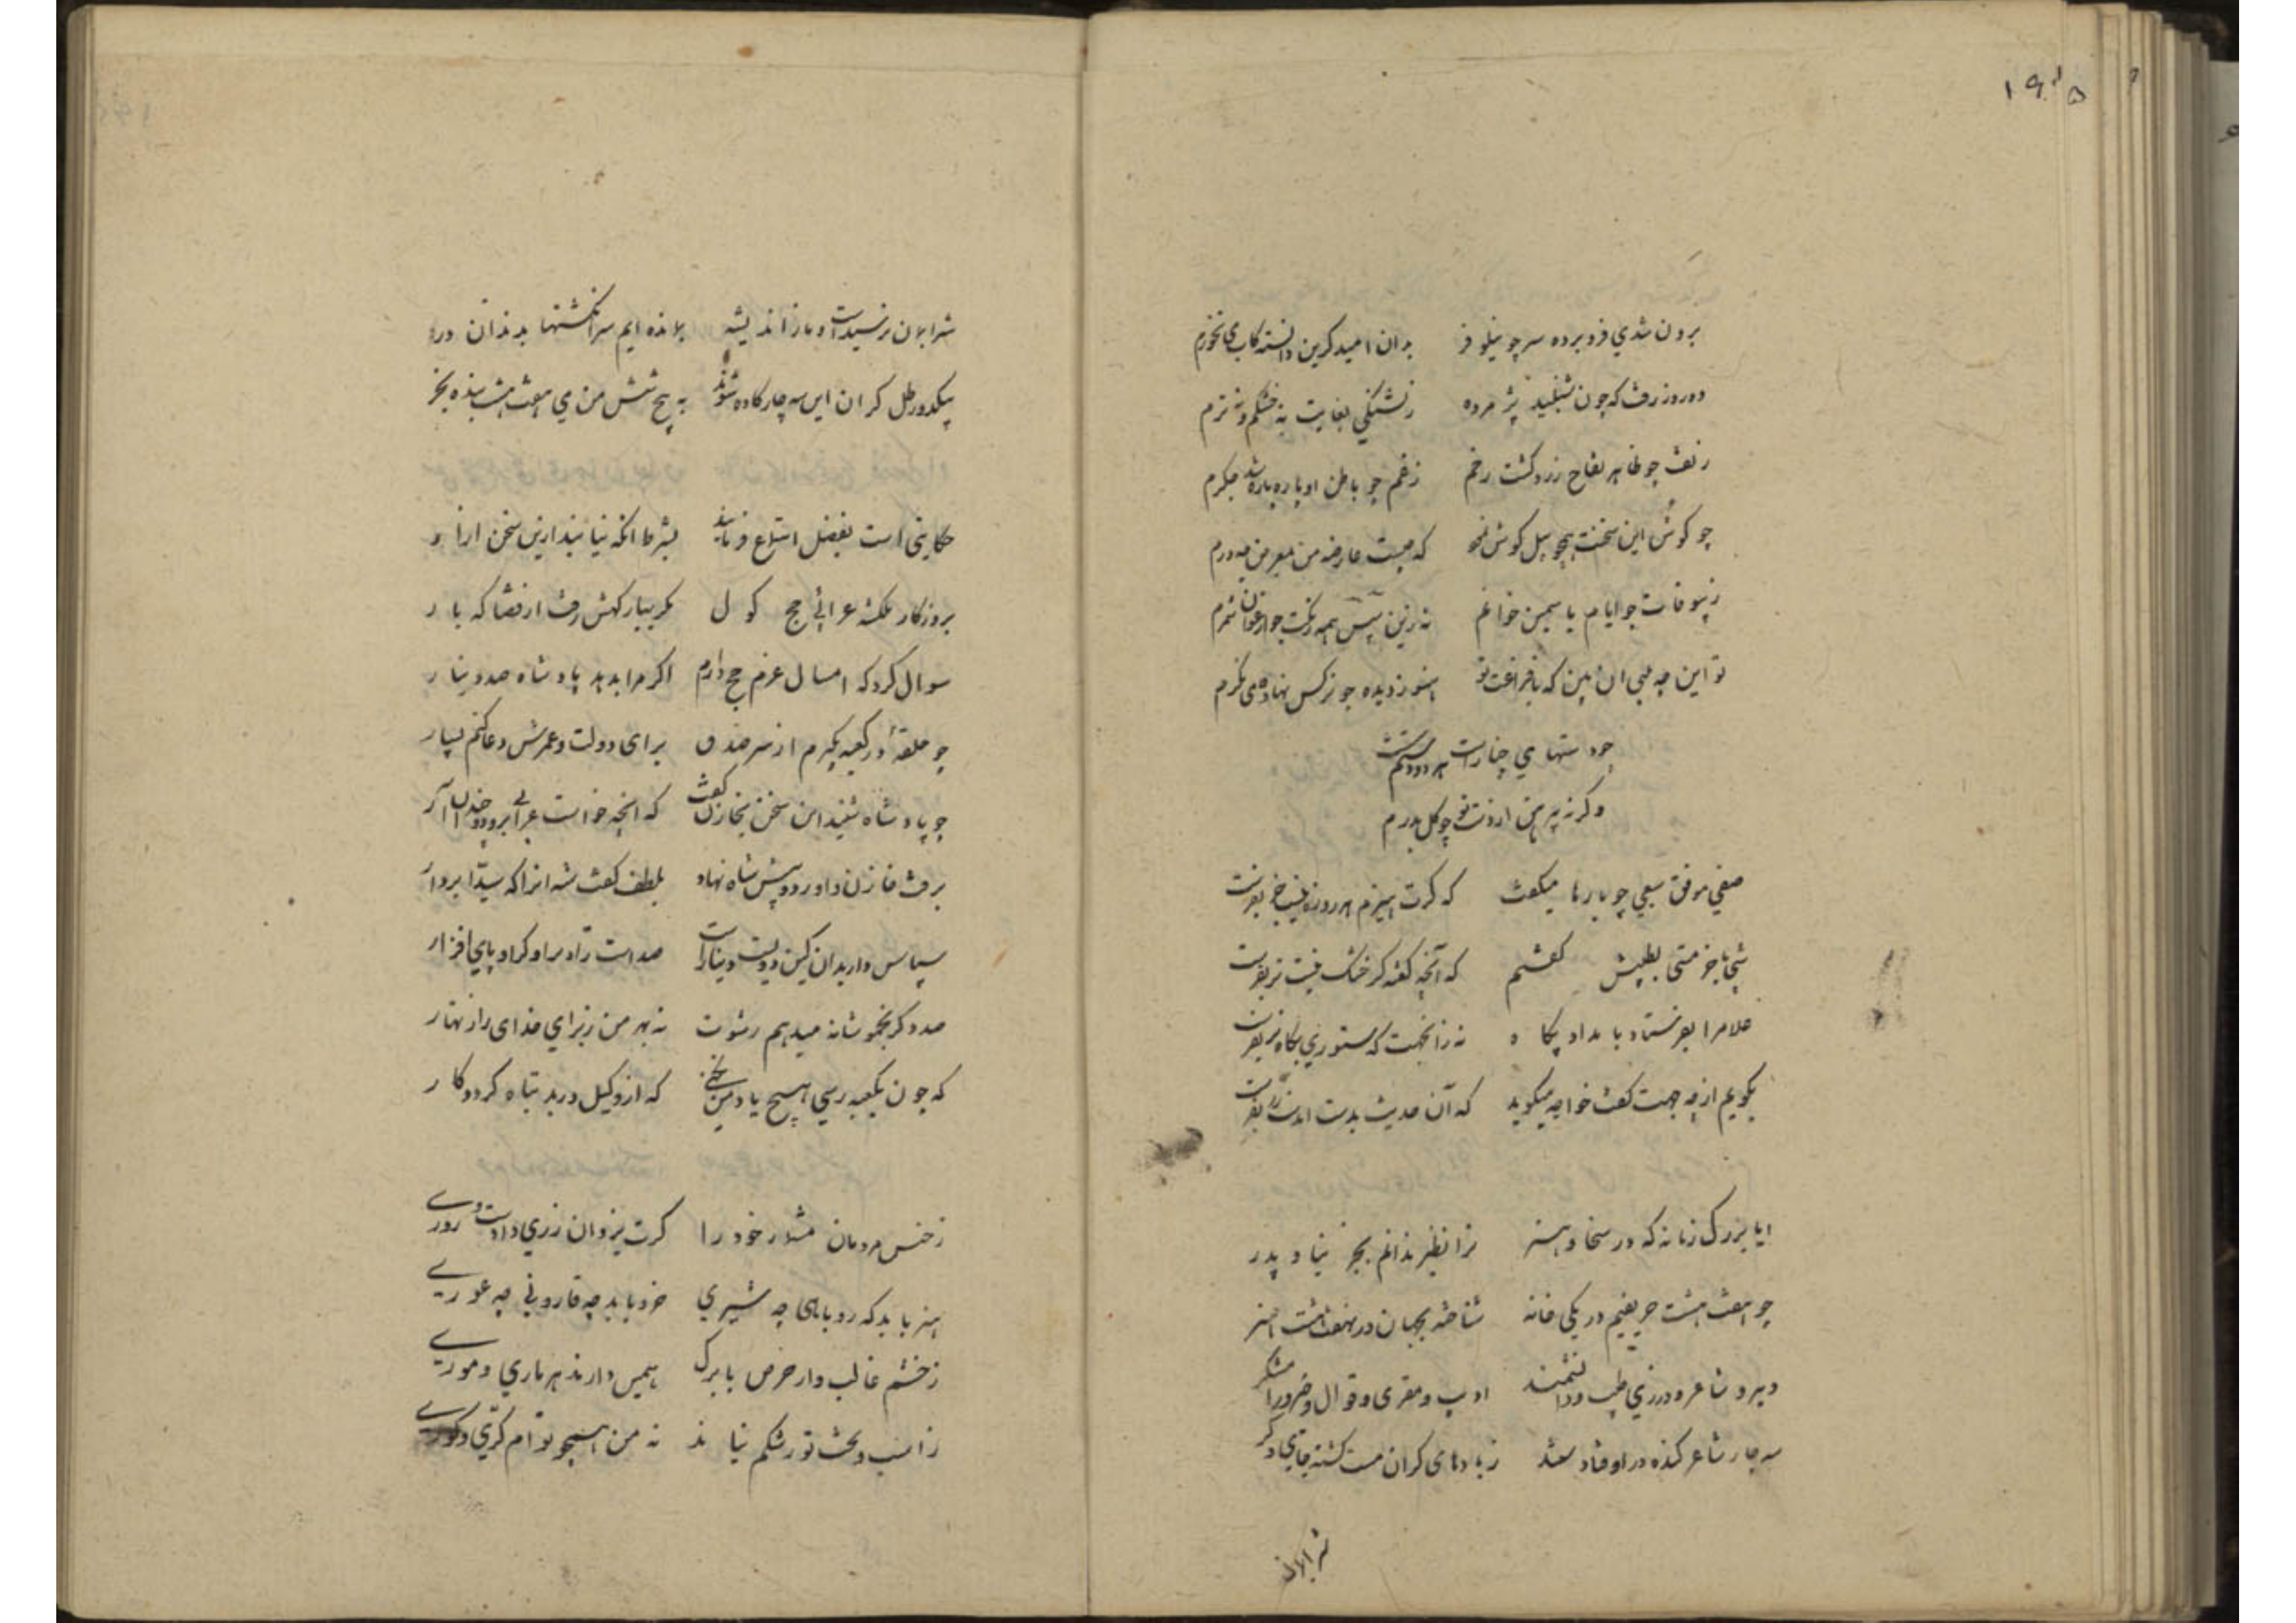 ۱۹۵
برون شدي فرو برده سر چو نیلوفر بدان امید کزین دانسته کاب می نخورم
ده روز رفت که چون شنبلید پژمرده ز تشنکي بغایت نه خشکم و نه ترم
زتفت چو ظاهر تفاح زرد کشت رخم ز غم چو باطن او پاره پاره شد جکرم
چو کوش این سخنت همچو پیل کوش
که چیست عارضه من
چو ایام یاسمین خواهم نه زین سپس همه رنکت چو ارغوان شمرم
تو این چه بیني ان بین که با فراغت تو هنوز دیده چو نرکس نهاده می نکرم
چو دستهاي چنارست هر دو دستم
وکر نه پیرهن از دست تو چو کل بدرم
صفي موفق سبعي چو بارها میکفت که کرت هیزم هر روزه نیست خر بفرست
شبی بآخر مستی بطیبتش کفتم که آنچه کفته کر خشک نیست تر بفرست
غلام را بفرستاد بامداد پکاه
بکویم از چه جهت کفت خواجه میکوید که آن حدیث بدست امدست زر بفرست
ایا بزرک زمانه که در سخا و هنر ترا نظیر ندانم بجز نیا و پدر
چو هفت هشت حریفیم در یکی خانه شناخته بجهان در بهفت هشت هنر
دبیر و شاعر و درزي طبیب و دانشمند ادیب و مقری و قوال و
سه چار شاعر کنده در اوفتاد ستند ز بادهای کران مست کشته جاي دکر
شرابلان
شرابلان نرسیدست و ما ز اندیشه بمانده ایم سر انکشتها بدندان در
بیکدو رطل کران این سه چار کاده شوند به پنج شش من می هفت هشت بنده بخر
حکایتی است بفضل استماع فرمایند بشرط انکه نیابند ازین سخن ازار
بروزکار ملکشه عرابئي حج کول مکر ببارکهش رفت از قضا که بار
سوال کرد که امسال عزم حج دارم اکر مرا بدهد پادشاه صد دینار
چو حلقهٔ در کعبه بکیرم از سر صدق برای دولت و عمرش دعا کنم بسیار
چو پادشاه شنید این سخن بخازن کفت که انچه خواست عرابي برو دو چندان آر
برفت خازن و اورد و پیش شاه نهاد بلطف کفت شه انرا که سیدا بردار
سپاس دار بدان کین دویست دینارست صدست زاد برا و کرا و پاي افزار
صد دکر بخموشانه میدهم رشوت نه بهر من ز برای خدای را زنهار
که چون بکعبه رسي هیچ یاد من نکني که از وکیل در بد تباه کردد کار
ز خنس مردمان مشمار خود را کرت یزدان زري دادست و زوري
هنر باید که روباهی چه شیري خرد باید چه قاروني چه عوري
ز خشم غالب و از حرص با برک همین دارند هر ماري و موري
ز اسب و بخت تو رشکم نیاید نه من همچو تو ام کري و کوري